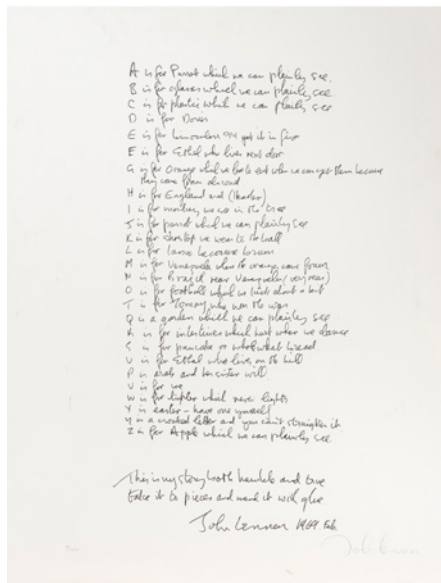 A is for Parrot which we can plainly see.
B is for glasses which we can plainly see
C is for plastic which we can plainly see
D is for Doris
E is for binoculars get it in five
E is for Ethel who lives next door
G is for Orange which we love to eat when we can get them because
they come from abroad
H is for England and (Heather)
I is for monkey we see in the tree
J is for parrot which we can plainly see
K is for shoetop we wear to the ball
L is for because brown
M is for Venezuela where the oranges come from
N is for Brazil near Venezuela (very near)
O is for football which we kick about a bit
T is for Tommy who won the war
Q is a garden which we can plainly see
R is for intestines which hurt when we dance
S is for pancake or wholewheat bread
U is for Ethel who lives on the hill
P is arab and her sister will
V is for me
W is for lighter which never lights
X is easter - have one yourself
Y is a crooked letter and you can't straighten it
Z is for Apple which we can plainly see.
This is my story both humble and true
take it to pieces and mend it with glue
John Lennon 1969. Feb